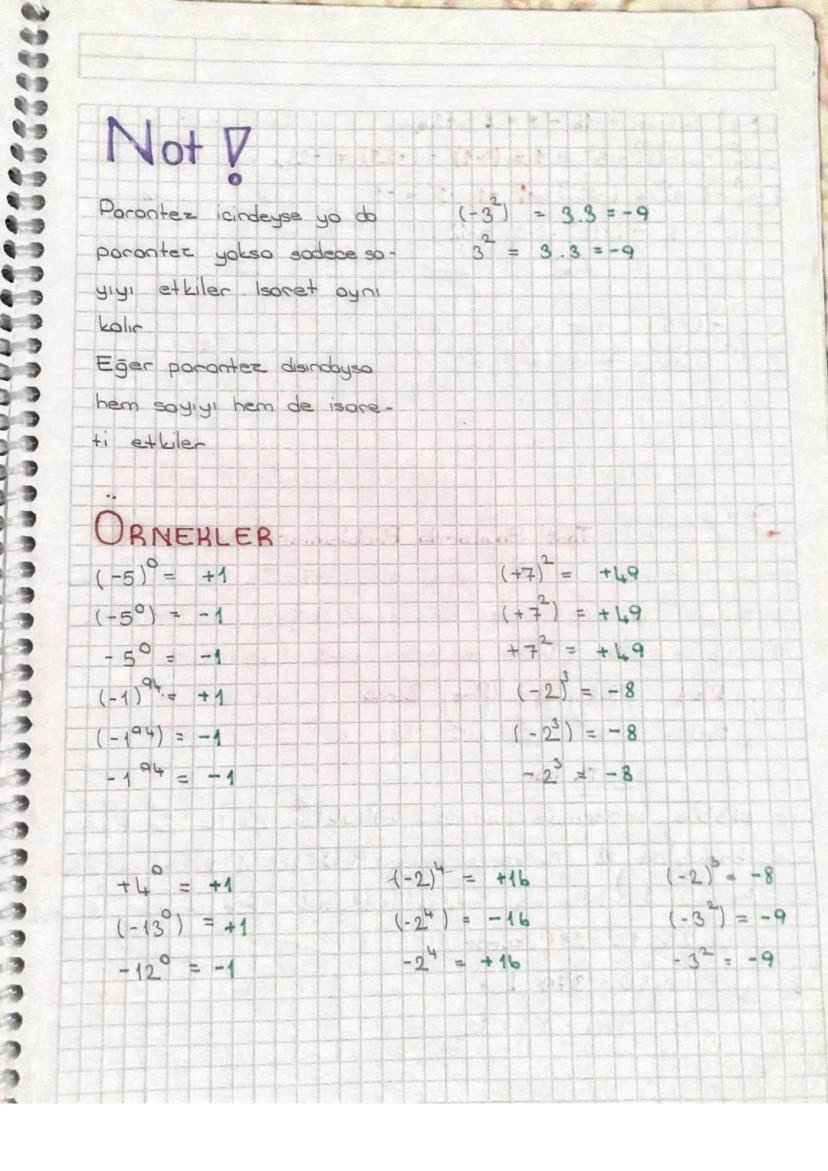 Not!
Parantez icindeyse ya da
parantez yoksa sadece sa-
yıyı etkiler Isaret aynı
kalır
Eğer parantez disindaysa
hem sayıyı hem de isare-
ti etkiler
(-3²) = 3.3 = -9
3² = 3.3 = -9
ÖRNEKLER
(-5)⁰ = +1
(-5⁰) = -1
-5⁰ = -1
(-1)⁹⁴ = +1
(-1⁹⁴) = -1
-1⁹⁴ = -1
(+7)² = +49
(+7²) = +49
+7² = +49
(-2)³ = -8
(-2³) = -8
-2³ = -8
+4⁰ = +1
(-13⁰) = +1
-12⁰ = -1
(-2)⁴ = +16
(-2⁴) = -16
-2⁴ = +16
(-2)³ = -8
(-3²) = -9
-3² = -9